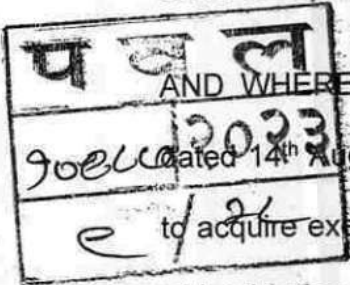 प व ल
AND WHERE
२०२३
dated 14th Aug
९ /
to acquire exe